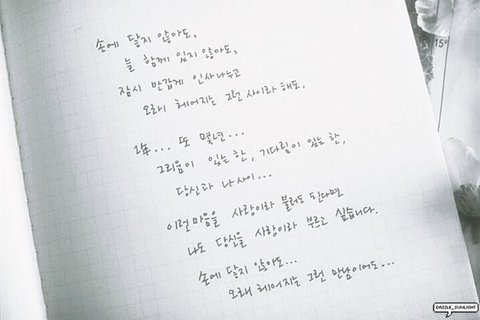 손에 닿지 않아도,
늘 함께 있지 않아도,
잠시 반갑게 인사나누고
오래 헤어지는 그런 사이라 해도.
1年... 또 몇년...
그리움이 있는 한, 기다림이 있는 한,
당신과 나 사이...
이런 마음을 사랑이라 불러도 된다면
나도 당신을 사랑이라 부르고 싶습니다.
손에 닿지 않아도...
오래 헤어지는 그런 만남이어도...
15°
DAZZLE_SUNLIGHT